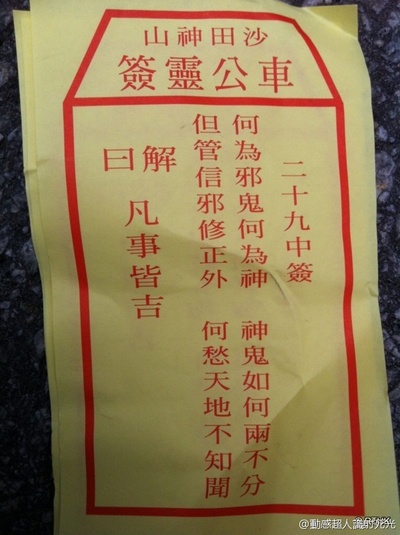 沙田神山
車公靈簽
二十九中簽
何為邪鬼何為神 神鬼如何兩不分
但管信邪修正外 何愁天地不知聞
解曰 凡事皆吉
@動感超人識的